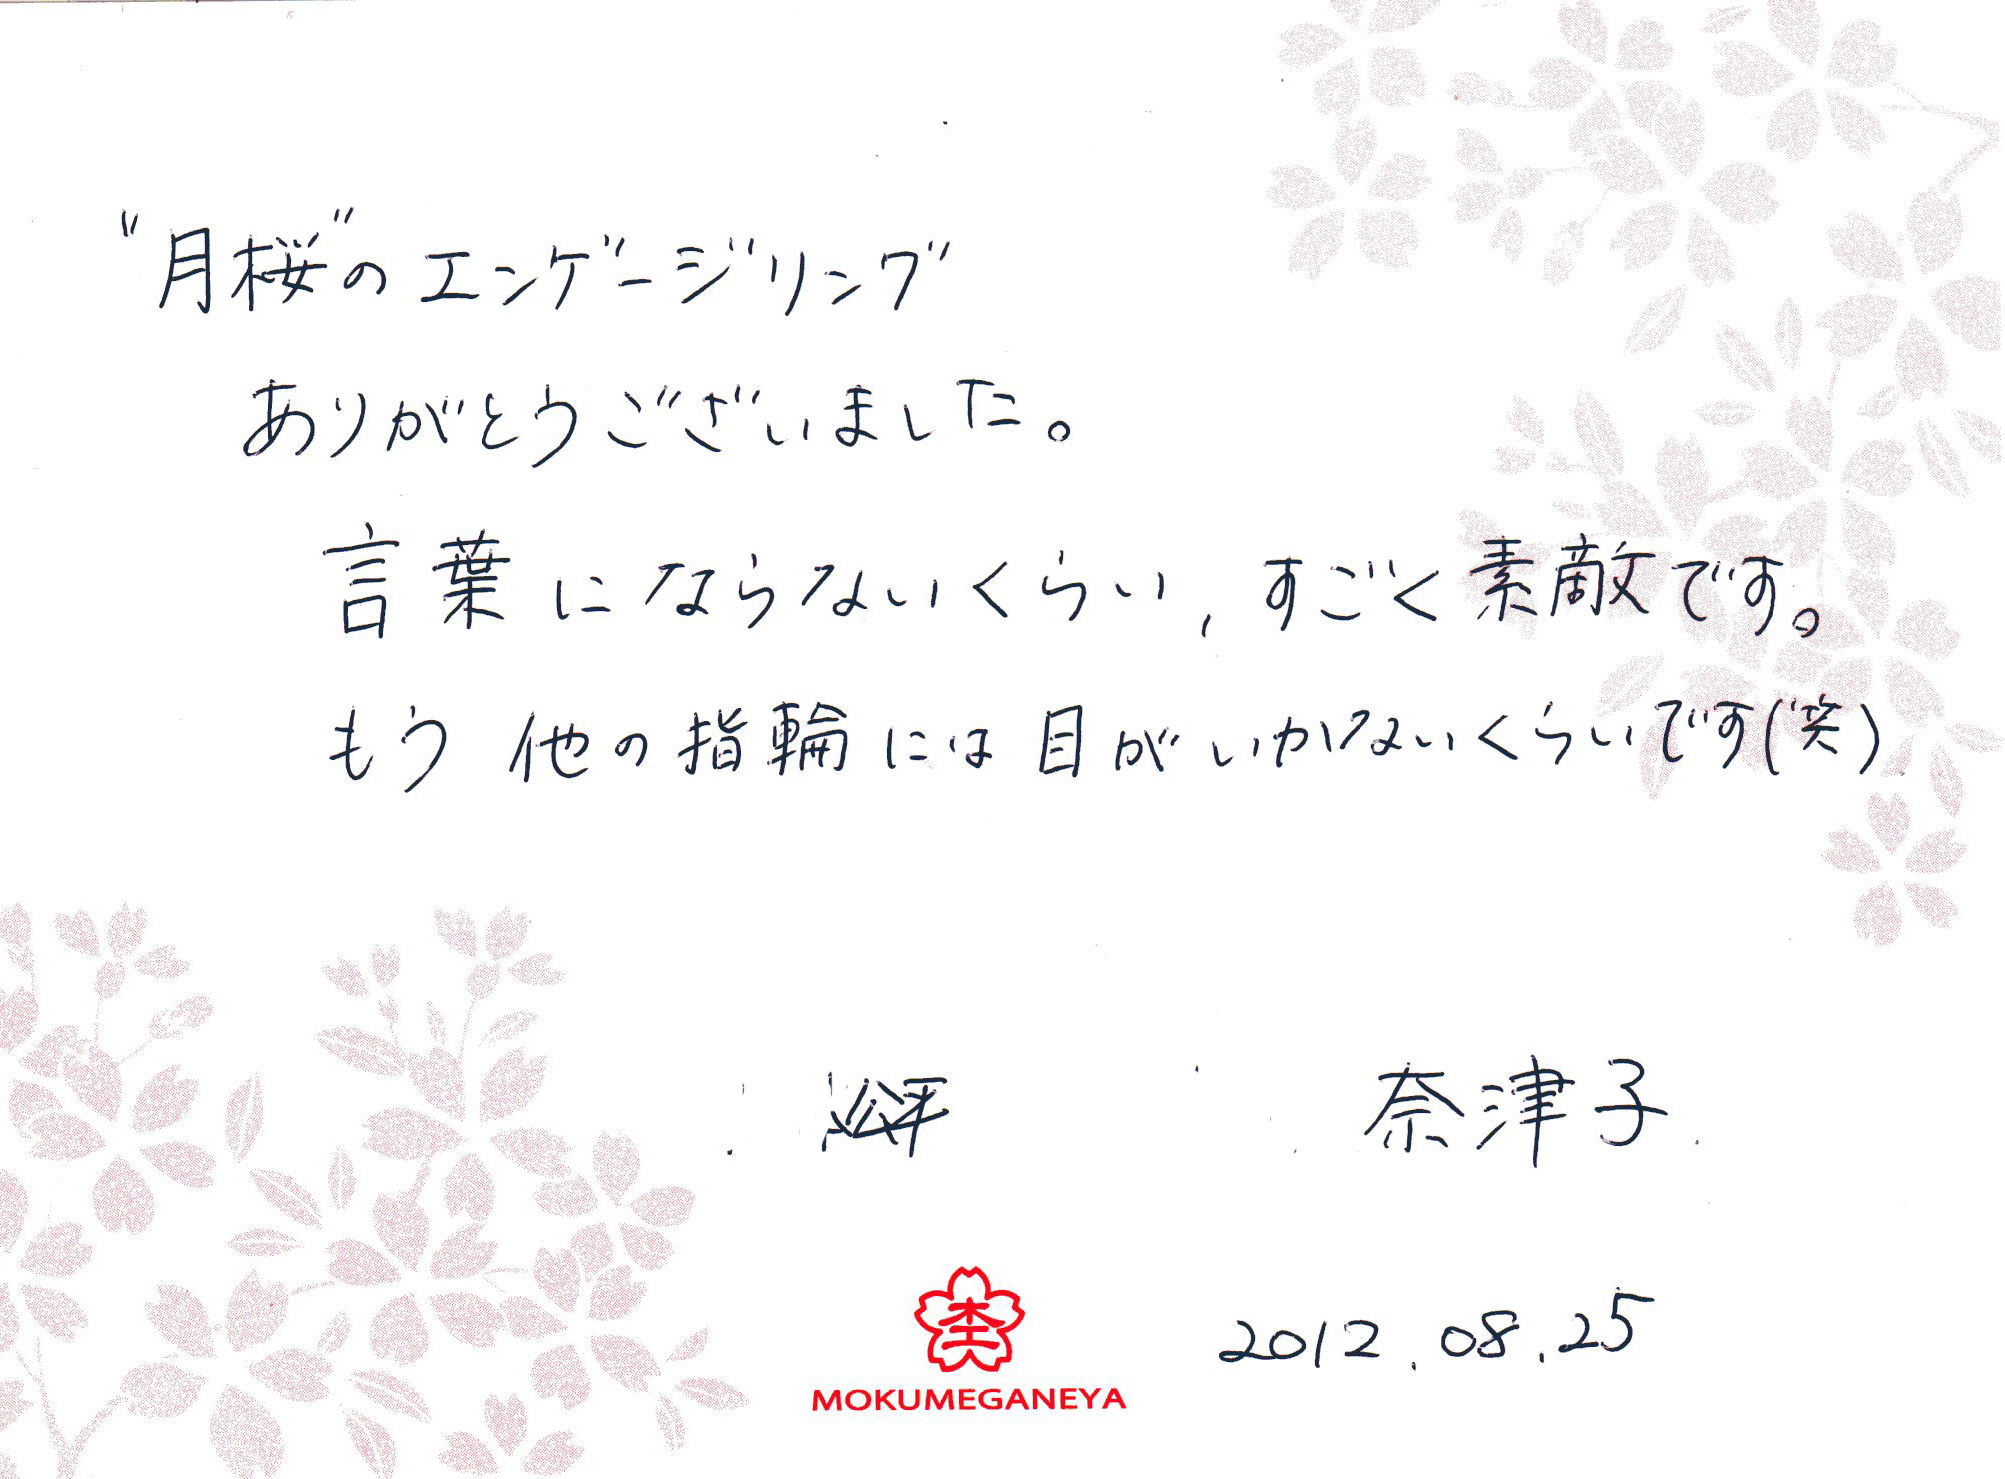 "月桜"の エンゲージリング
ありがとうございました。
言葉にならないくらい、すごく素敵です。
もう 他の指輪には目がいかないくらいです(笑)
奈津子
杢
MOKUMEGANEYA
2012.08.25